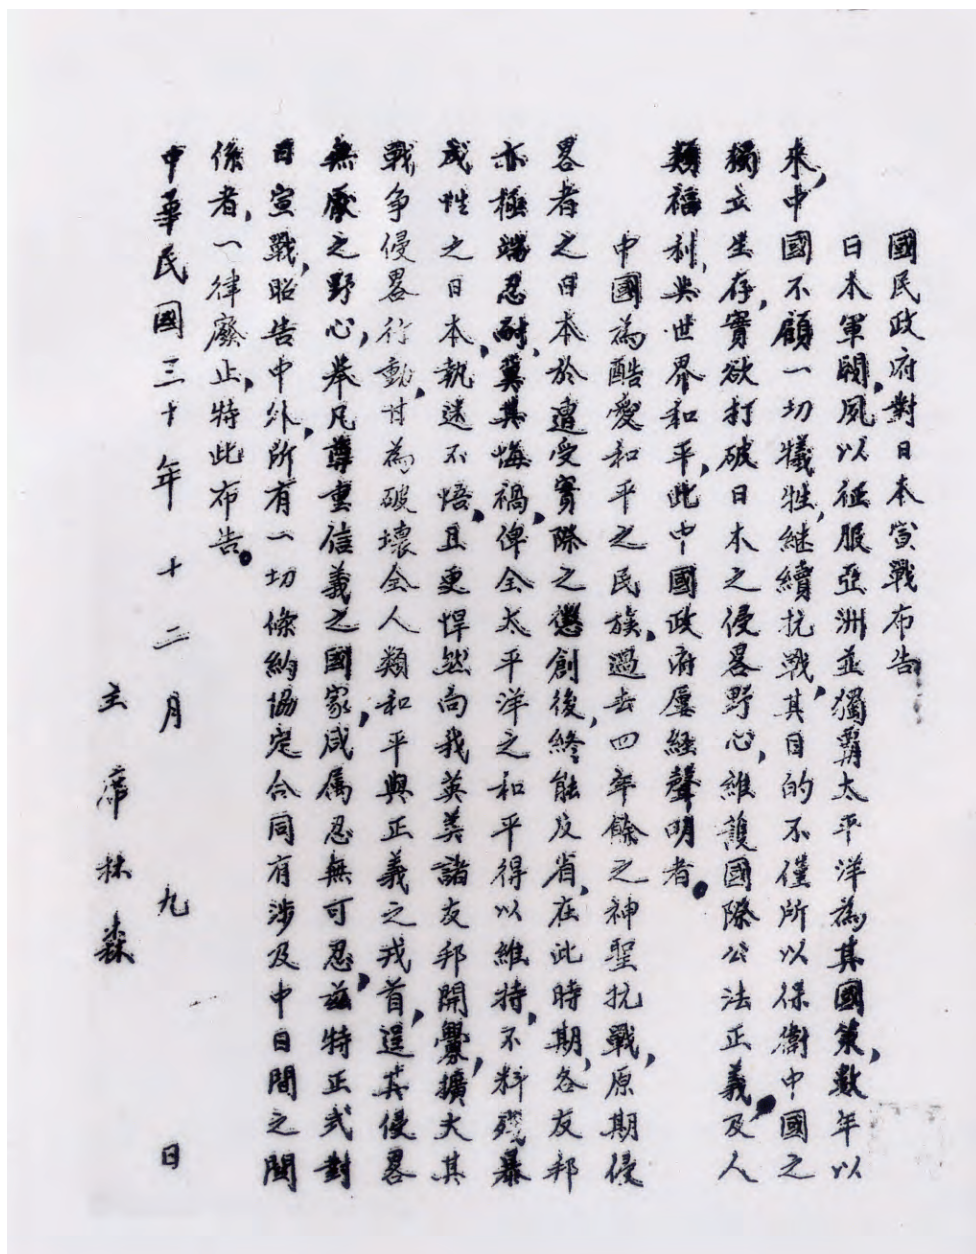 國民政府對日本宣戰布告
日本軍閥,夙以征服亞洲並獨霸太平洋為其國策,數年以
來,中國不顧一切犧牲,繼續抗戰,其目的不僅所以保衛中國之
獨立生存,實欲打破日本之侵畧野心,維護國際公法正義,及人
類福利,與世界和平,此中國政府屢經聲明者。
中國為酷愛和平之民族,過去四年餘之神聖抗戰,原期侵
畧者之日本於遭受實際之懲創後,終能反省,在此時期,各友邦
亦極端忍耐,冀其悔禍,俾全太平洋之和平得以維持,不料殘暴
成性之日本,執迷不悟,且更悍然向我英美諸友邦開釁,擴大其
戰爭侵畧行動,甘為破壞全人類和平與正義之戎首,逞其侵畧
無厭之野心,舉凡尊重信義之國家,咸属忍無可忍,茲特正式對
日宣戰,昭告中外,所有一切條約協定合同有涉及中日間之關
係者,一律廢止,特此布告。
中華民國三十年十二月九日
主席林森